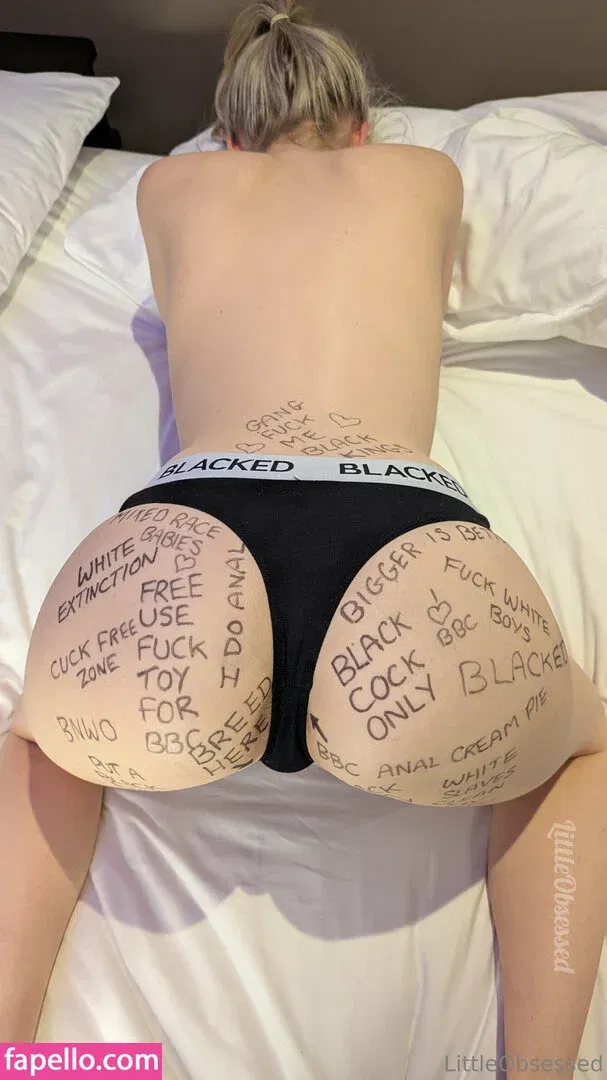 GANG
FUCK
ME
BLACK
KINGS
BLACKED BLACKED
MIXED RACE
BABIES
WHITE
EXTINCTION
FREE
USE
FUCK
TOY
FOR
BBC
I DO ANAL
CUCK FREE
ZONE
BNWO
BREED
HERE
PUT A
BIGGER IS
FUCK WHITE
BOYS
BLACK
COCK
ONLY
BBC
BLACKED
BBC ANAL CREAM PIE
WHITE
SLAVES
LittleObsessed
fapello.com
LittleObsessed